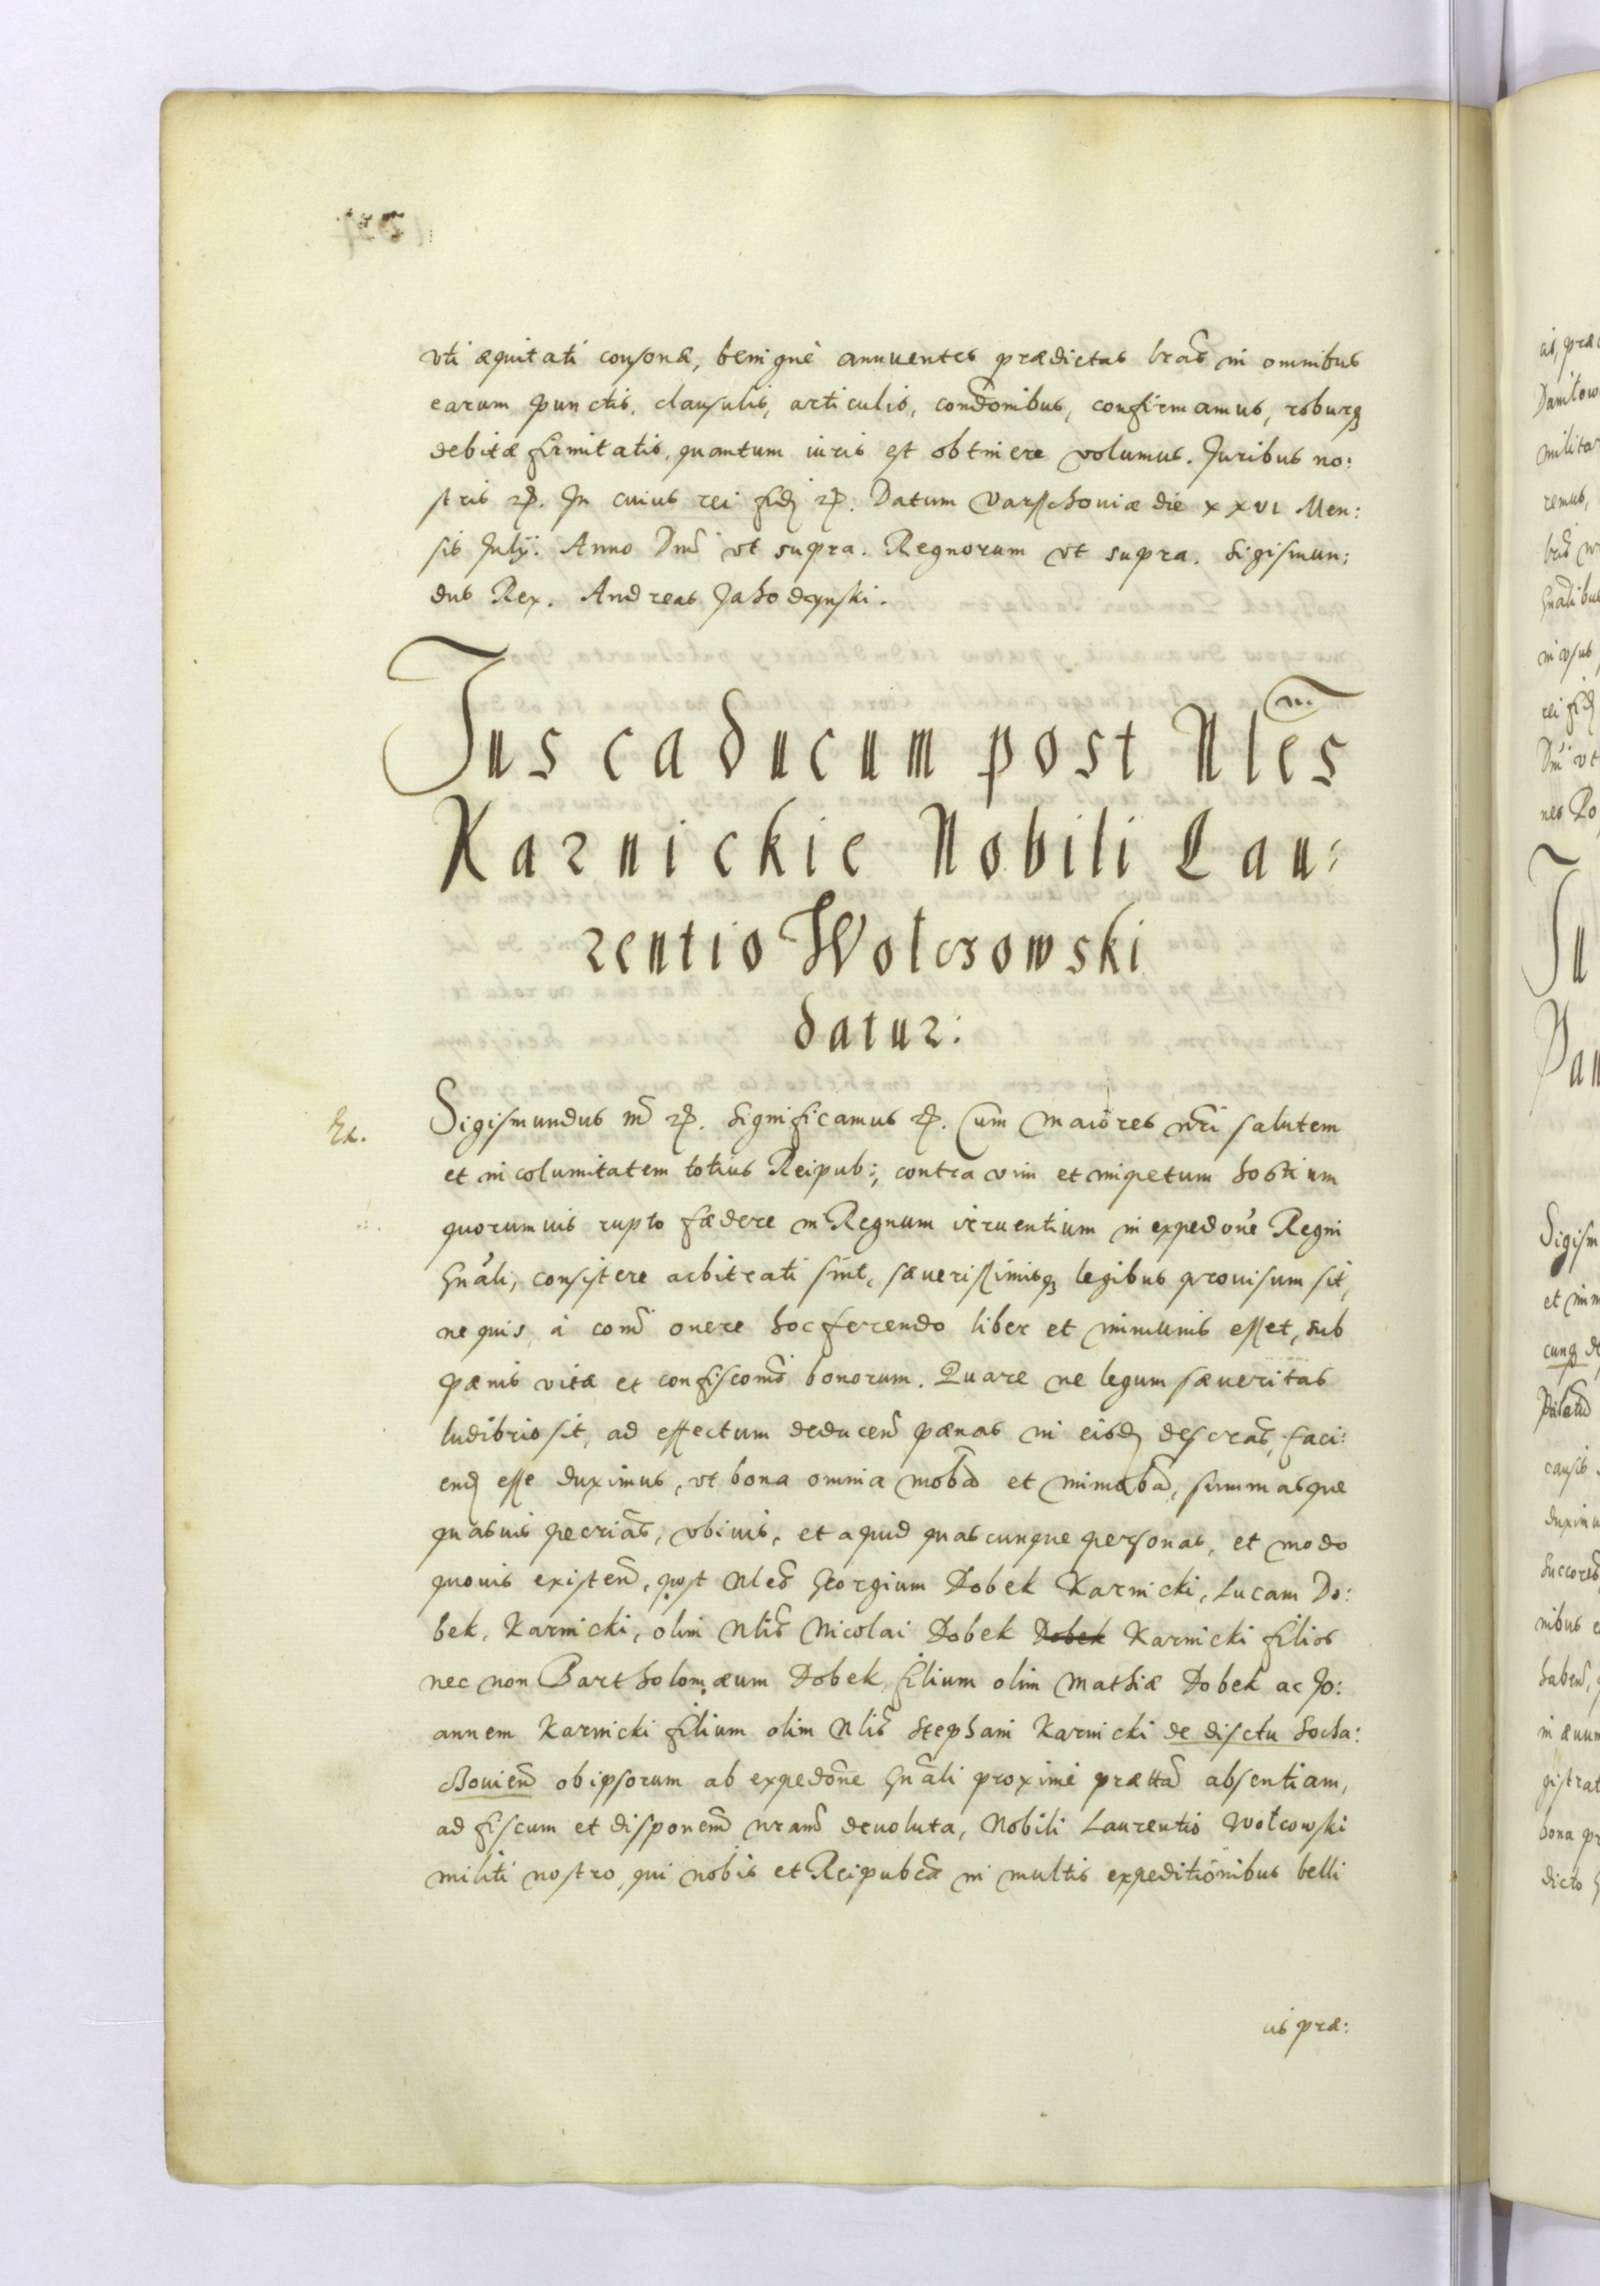 vti æquitati consona, benignè annuentes prædictas lras in omnibus
earum punctis, clausulis, articulis, condonibus, confirmamus, roburq
debitæ firmitatis, quantum iuris est obtinere volumus. Juribus no:
stris etc. In cuius rei fidē etc. Datum Varsschoviæ die XXVI Men:
sis Julÿ. Anno Dnī vt supra. Regnorum vt supra. Sigismun:
dus Rex. Andreas Jahodÿnski.
Jus caducum post Nlēs
Karnickie Nobili Lau:
rentio Wolczowski
datur:
Sigismundus etc. Significamus etc. Cum Maiores nrī salutem
et incolumitatem totius Reipub:, contra vim et impetum hostium
quorumuis rupto fædere in Regnum irruentium in expedone Regni
Gnāli, consistere arbitrati sint, sæverissimisq legibus provisum sit,
ne quis à comī onere hoc ferendo liber et immunis esset, sub
pænis vitæ et confiscōnis bonorum. Quare ne legum sæveritas
ludibrio sit, ad effectum deducen pænas in eisdē descrās, faci:
endē esse duximus, vt bona omnia mobā et immobā, summasque
quasuis pecriās, vbiuis, et apud quascunque personas, et modo
quouis existen, post Nlēs Georgium Dobek Karnicki, Lucam Do:
bek, Karnicki, olim Nlīs Nicolai Dobek Dobek Karnicki filios
nec non Bartholomæum Dobek, filium olim Mathiæ Dobek ac Jo:
annem Karnicki filium olim Nlīs Stephani Karnicki de disctu Socha:
czouien ob ipsorum ab expedōne Gnāli proximè prætta absentiam,
ad fiscum et disponem nram devoluta, Nobili Laurentio Wolcowski
militi nostro, qui nobis et Reipubcæ in multis expeditionibus belli
is præ: